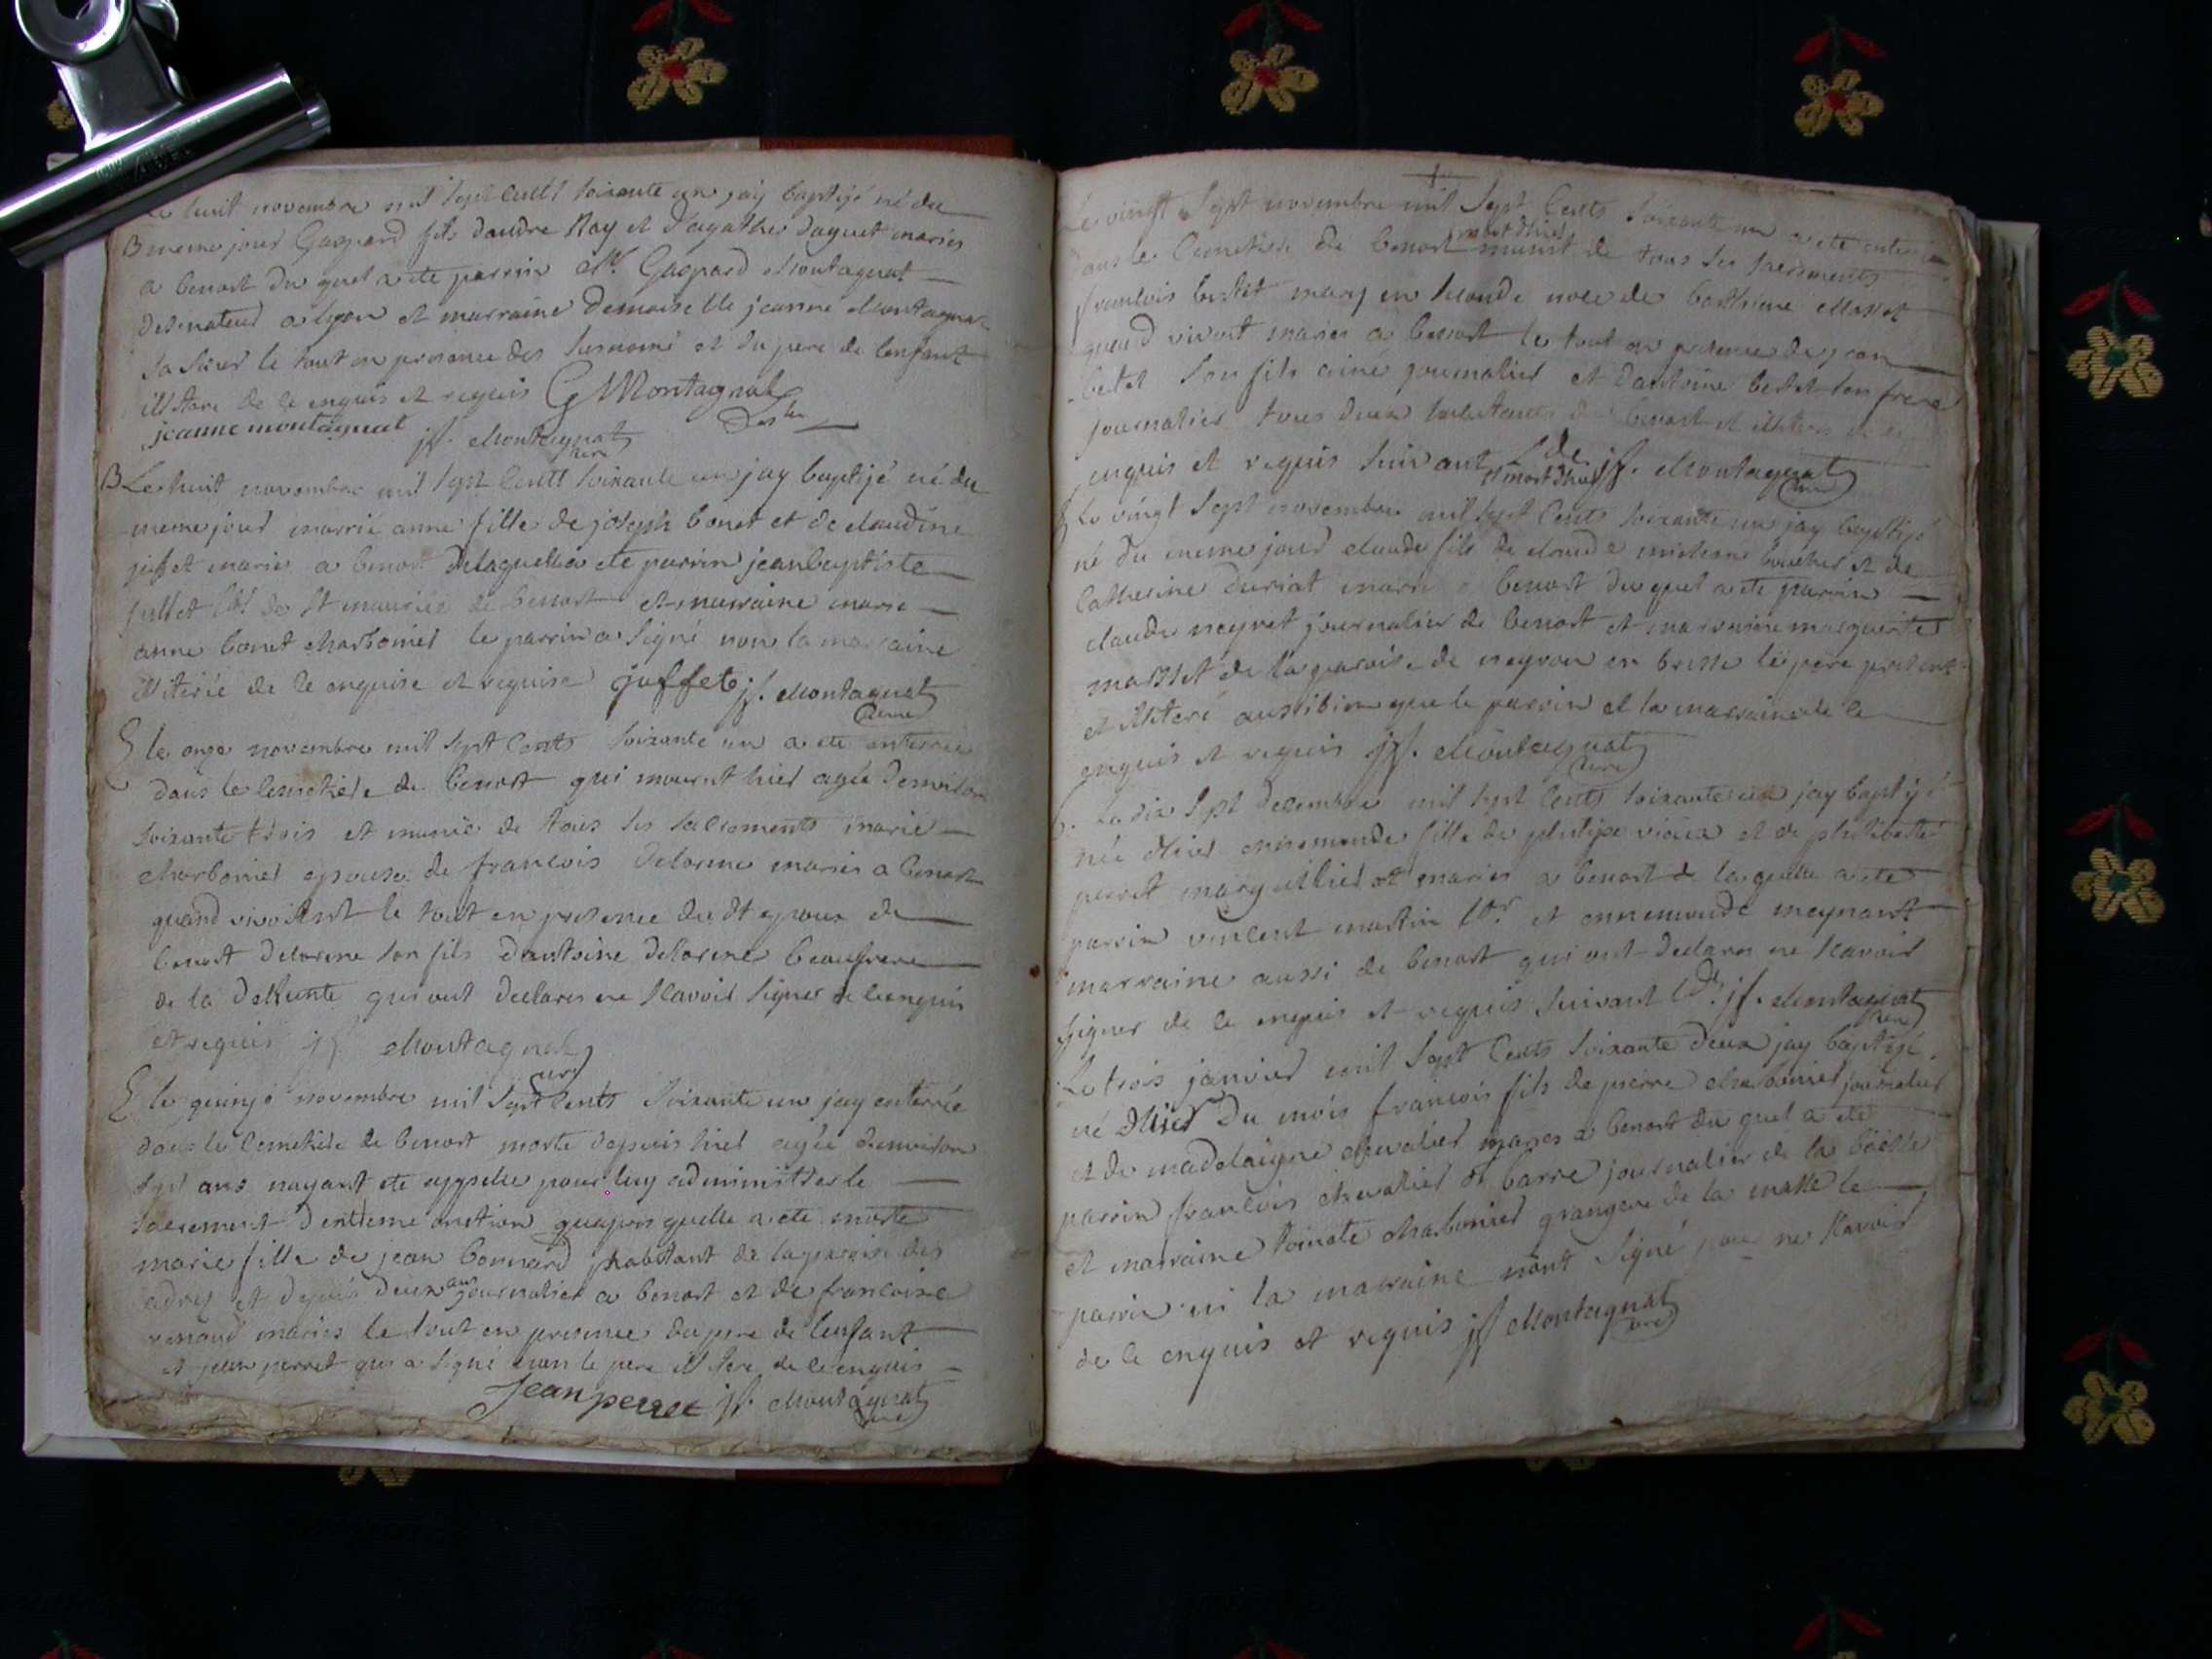 Le huit novembre mil sept cents soixante un jay baptisé né du
B meme jour Gaspard fils dandre Ray et dagathes daguet mariés
a benost du quel a ete parrin Mr. Gaspard Montagnat
desinateur a lyon et marraine demoiselle jeanne Montagnat
sa soeur le tout en presence des susnomé et du pere de lenfant
illitere de ce enquis et requis G Montagnat
jeanne montagnat jf. Montagnat
curé
B Le huit novembre mil sept cents soixante un jay baptisé né du
meme jour marrie anne fille de joseph bonet et de claudine
juffet mariés a benost delaquella ete parrin jean baptiste
juffet de St maurice de benost et marraine marie
anne bonet charbonier le parrin a signé non la marraine
illiterée de ce enquise et requise juffet jf. Montagnat
curé
E le onze novembre mil sept cents soixante un a ete enterrée
dans le cemetiere de benost qui mourut hier agée denviron
soixante trois et munie de tous ses sacrements marie
charbonier epouse de francois delorme mariés a benost
quand vivoient le tout en presence du dt epoux de
benost delorme son fils dantoine delorme beaufrere
de la deffunte qui ont declarés ne scavoir signer de ce enquis
et requis jf Montagnat
curé
E le quinze novembre mil sept cents soixante un jay enterrée
dans le cemetiere de benost morte depuis hier agée denviron
sept ans nayant ete appellee pour luy administrer le
sacrement dextreme onction quapres quelle a ete morte
marie fille de jean bonnard habitant de la paroisse des
et depuis deux ans journalier a benost et de francoise
renaud mariés le tout en presence du pere de lenfant
et jean perret qui a signé non le pere illitere de ce enquis
Jean perret jf. Montagnat
curé
Le vingt sept novembre mil sept cents soixante un a ete enterré
dans le cemetiere de benost mort dhier munit de tous ses sacrements
francois bertet mary en seconde noce de
quand vivoit mariés a benost le tout en presence de jean
bertet son fils ainé journalier et dantoine bertet son frere
journalier tous deux habitants de benost et illiteres de ce
enquis et requis suivant lde jf. Montagnat
mort dhier curé
B Le vingt sept novembre mil sept cents soixante un jay baptisé
né du meme jour claude fils de claude et de
catherine duriat mariés a benost du quel a ete parrin
claude neyret journalier de benost et marraine marguerite
de la paroisse de neyron en bresse le pere present
et illiteré aussi bien que le parrin et la marraine de ce
enquis et requis jf. Montagnat
curé
B. Le dix sept decembre mil sept cents soixante un jay baptisé
née dhier ennemonde fille de philipe vieux et de philiberte
perret marguillier et mariés a benost de laquelle a ete
parrin vincent martin et ennemonde meynard
marraine aussi de benost qui ont declarés ne scavoir
signer de ce enquis et requis suivant lde. jf. Montagnat
curé
Le trois janvier mil sept cents soixante deux jay baptisé
né dhier du mois francois fils de pierre charbonier journalier
et de madelaigne chevalier mariés a benost du quel a ete
parrin francois chevalier dt barre journalier de la boesse
et marraine toinete charbonier grangere de la matte le
parrin ni la marraine nont signé pour ne scavoir
de ce enquis et requis jf Montagnat
curé